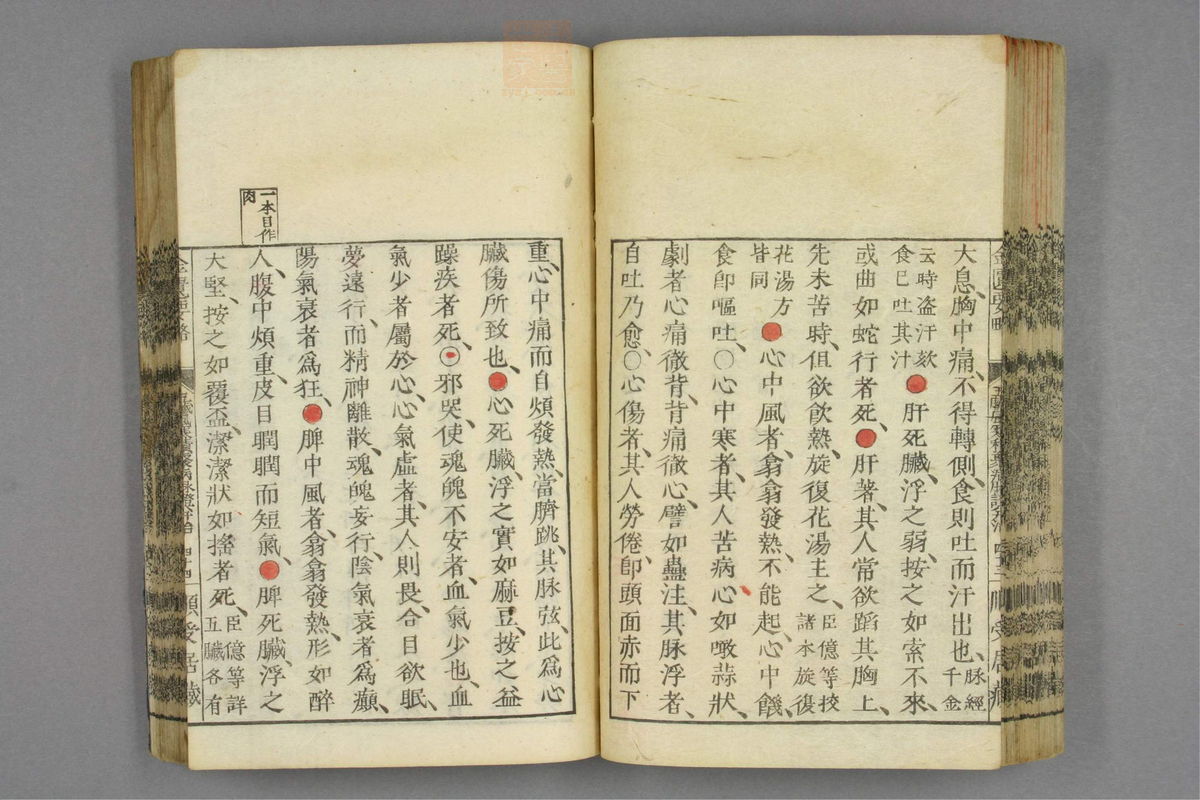 大息、胸中痛、不得轉側、食則吐而汗出也、脉經千金
云時盗汗欬食已吐其汁●肝死臟、浮之弱、按之如索不來、
或曲如蛇行者死、●肝著、其人常欲蹈其胸上、
先未苦時、但欲飲熱、旋復花湯主之、臣億等挍諸本旋復
花湯方皆同●心中風者、翕翕發熱、不能起、心中饑、
食卽嘔吐、○心中寒者、其人苦病心如噉蒜狀、
劇者心痛徹背、背痛徹心、譬如蠱注、其脉浮者、
自吐乃愈、○心傷者、其人勞倦、卽頭面赤而下
重、心中痛而自煩發熱、當臍跳、其脉弦、此爲心
臟傷所致也、●心死臟、浮之實如麻豆、按之益
躁疾者死、○邪哭、使魂魄不安者、血氣少也、血
氣少者屬於心、心氣虛者、其人則畏、合目欲眠、
夢遠行、而精神離散、魂魄妄行、陰氣衰者爲癲、
陽氣衰者爲狂、●脾中風者、翕翕發熱、形如醉
一本目作肉
人、腹中煩重、皮目瞤瞤而短氣、●脾死臟、浮之
大堅、按之如覆盃、潔潔狀如搖者死、臣億等詳五臟各有
四十四
順受居藏